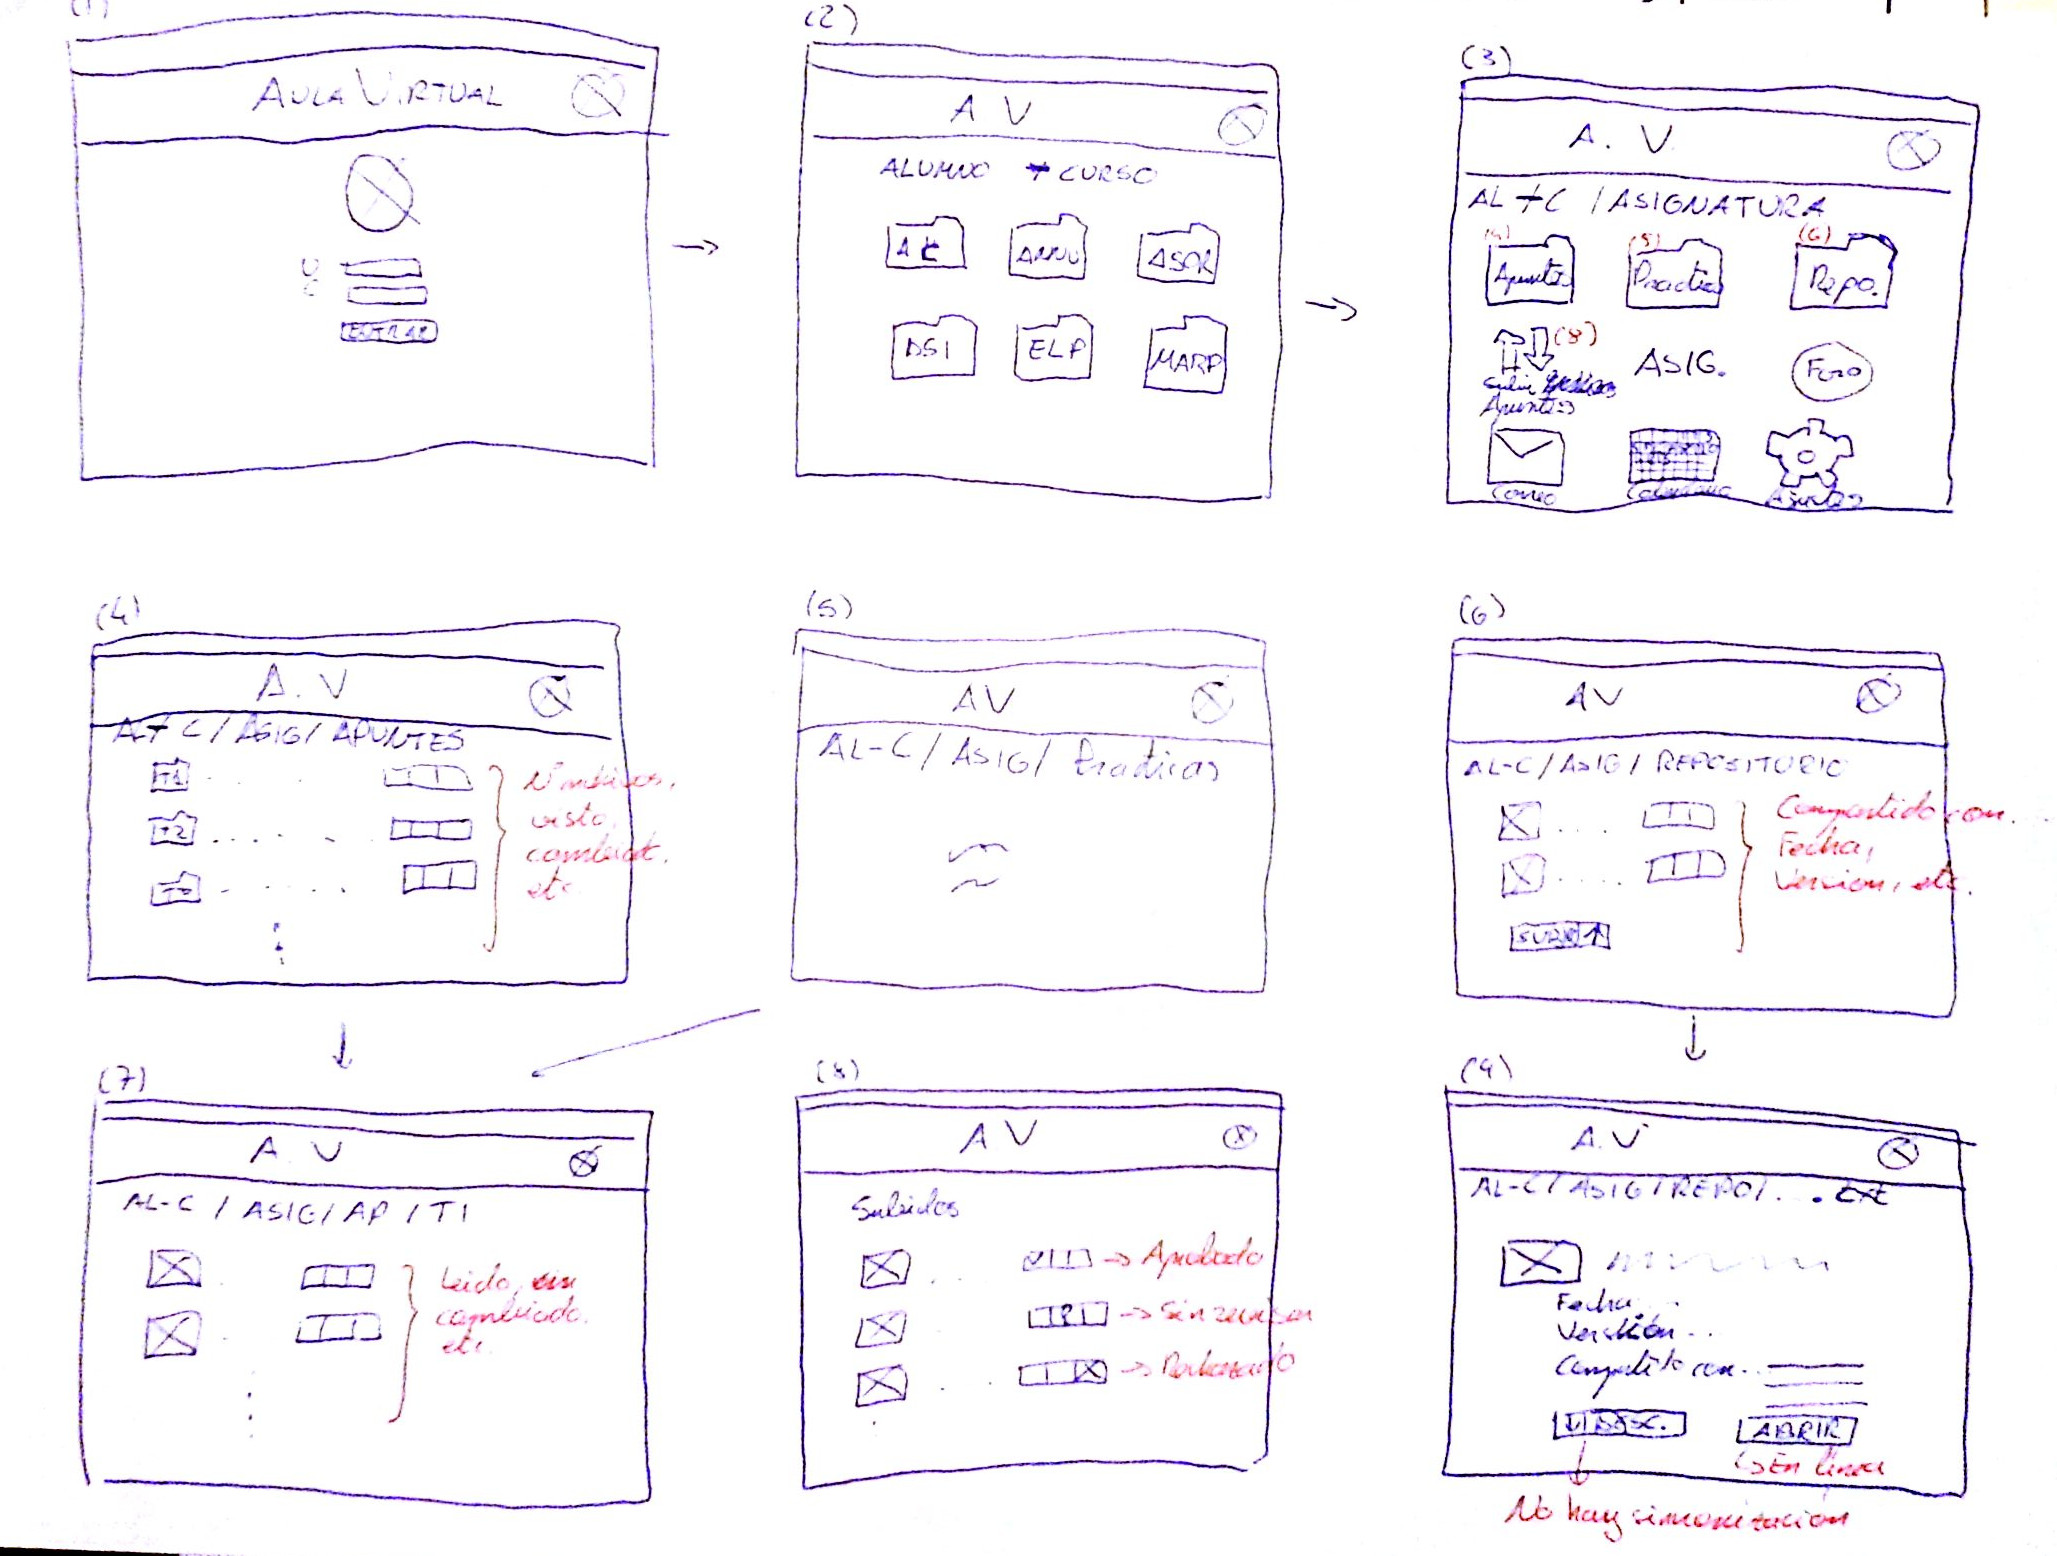 (1)
AULA VIRTUAL
U
C
ENTRAR
(2)
A V
ALUMNO + CURSO
ASOR
DSI
ELP
MARP
(3)
A. V.
AL + C / ASIGNATURA
(4)
(5)
(6)
Apuntes
Practicas
Repo.
(8)
Subir
Apuntes
ASIG.
Foro
Correo
Calendario
(4)
A. V
AL + C / ASIG / APUNTES
T1
T2
visto,
etc
(5)
AV
AL-C / ASIG / Practicas
(6)
AV
AL-C / ASIG / REPOSITORIO
Compartido con.
Fecha,
Version, etc.
SUBIR ↑
(7)
A. V
AL-C / ASIG / AP / T1
Leido, sin
cambiado.
etc.
(8)
A V
Subidos
→ Aprobado
→ Sin revisar
→ Rechazado
(9)
A. V
AL-C / ASIG / REPO / ... . EXE
Fecha...
Versión...
Compartido con...
↓ DESC.
ABRIR
↳ En linea
No hay sincronización